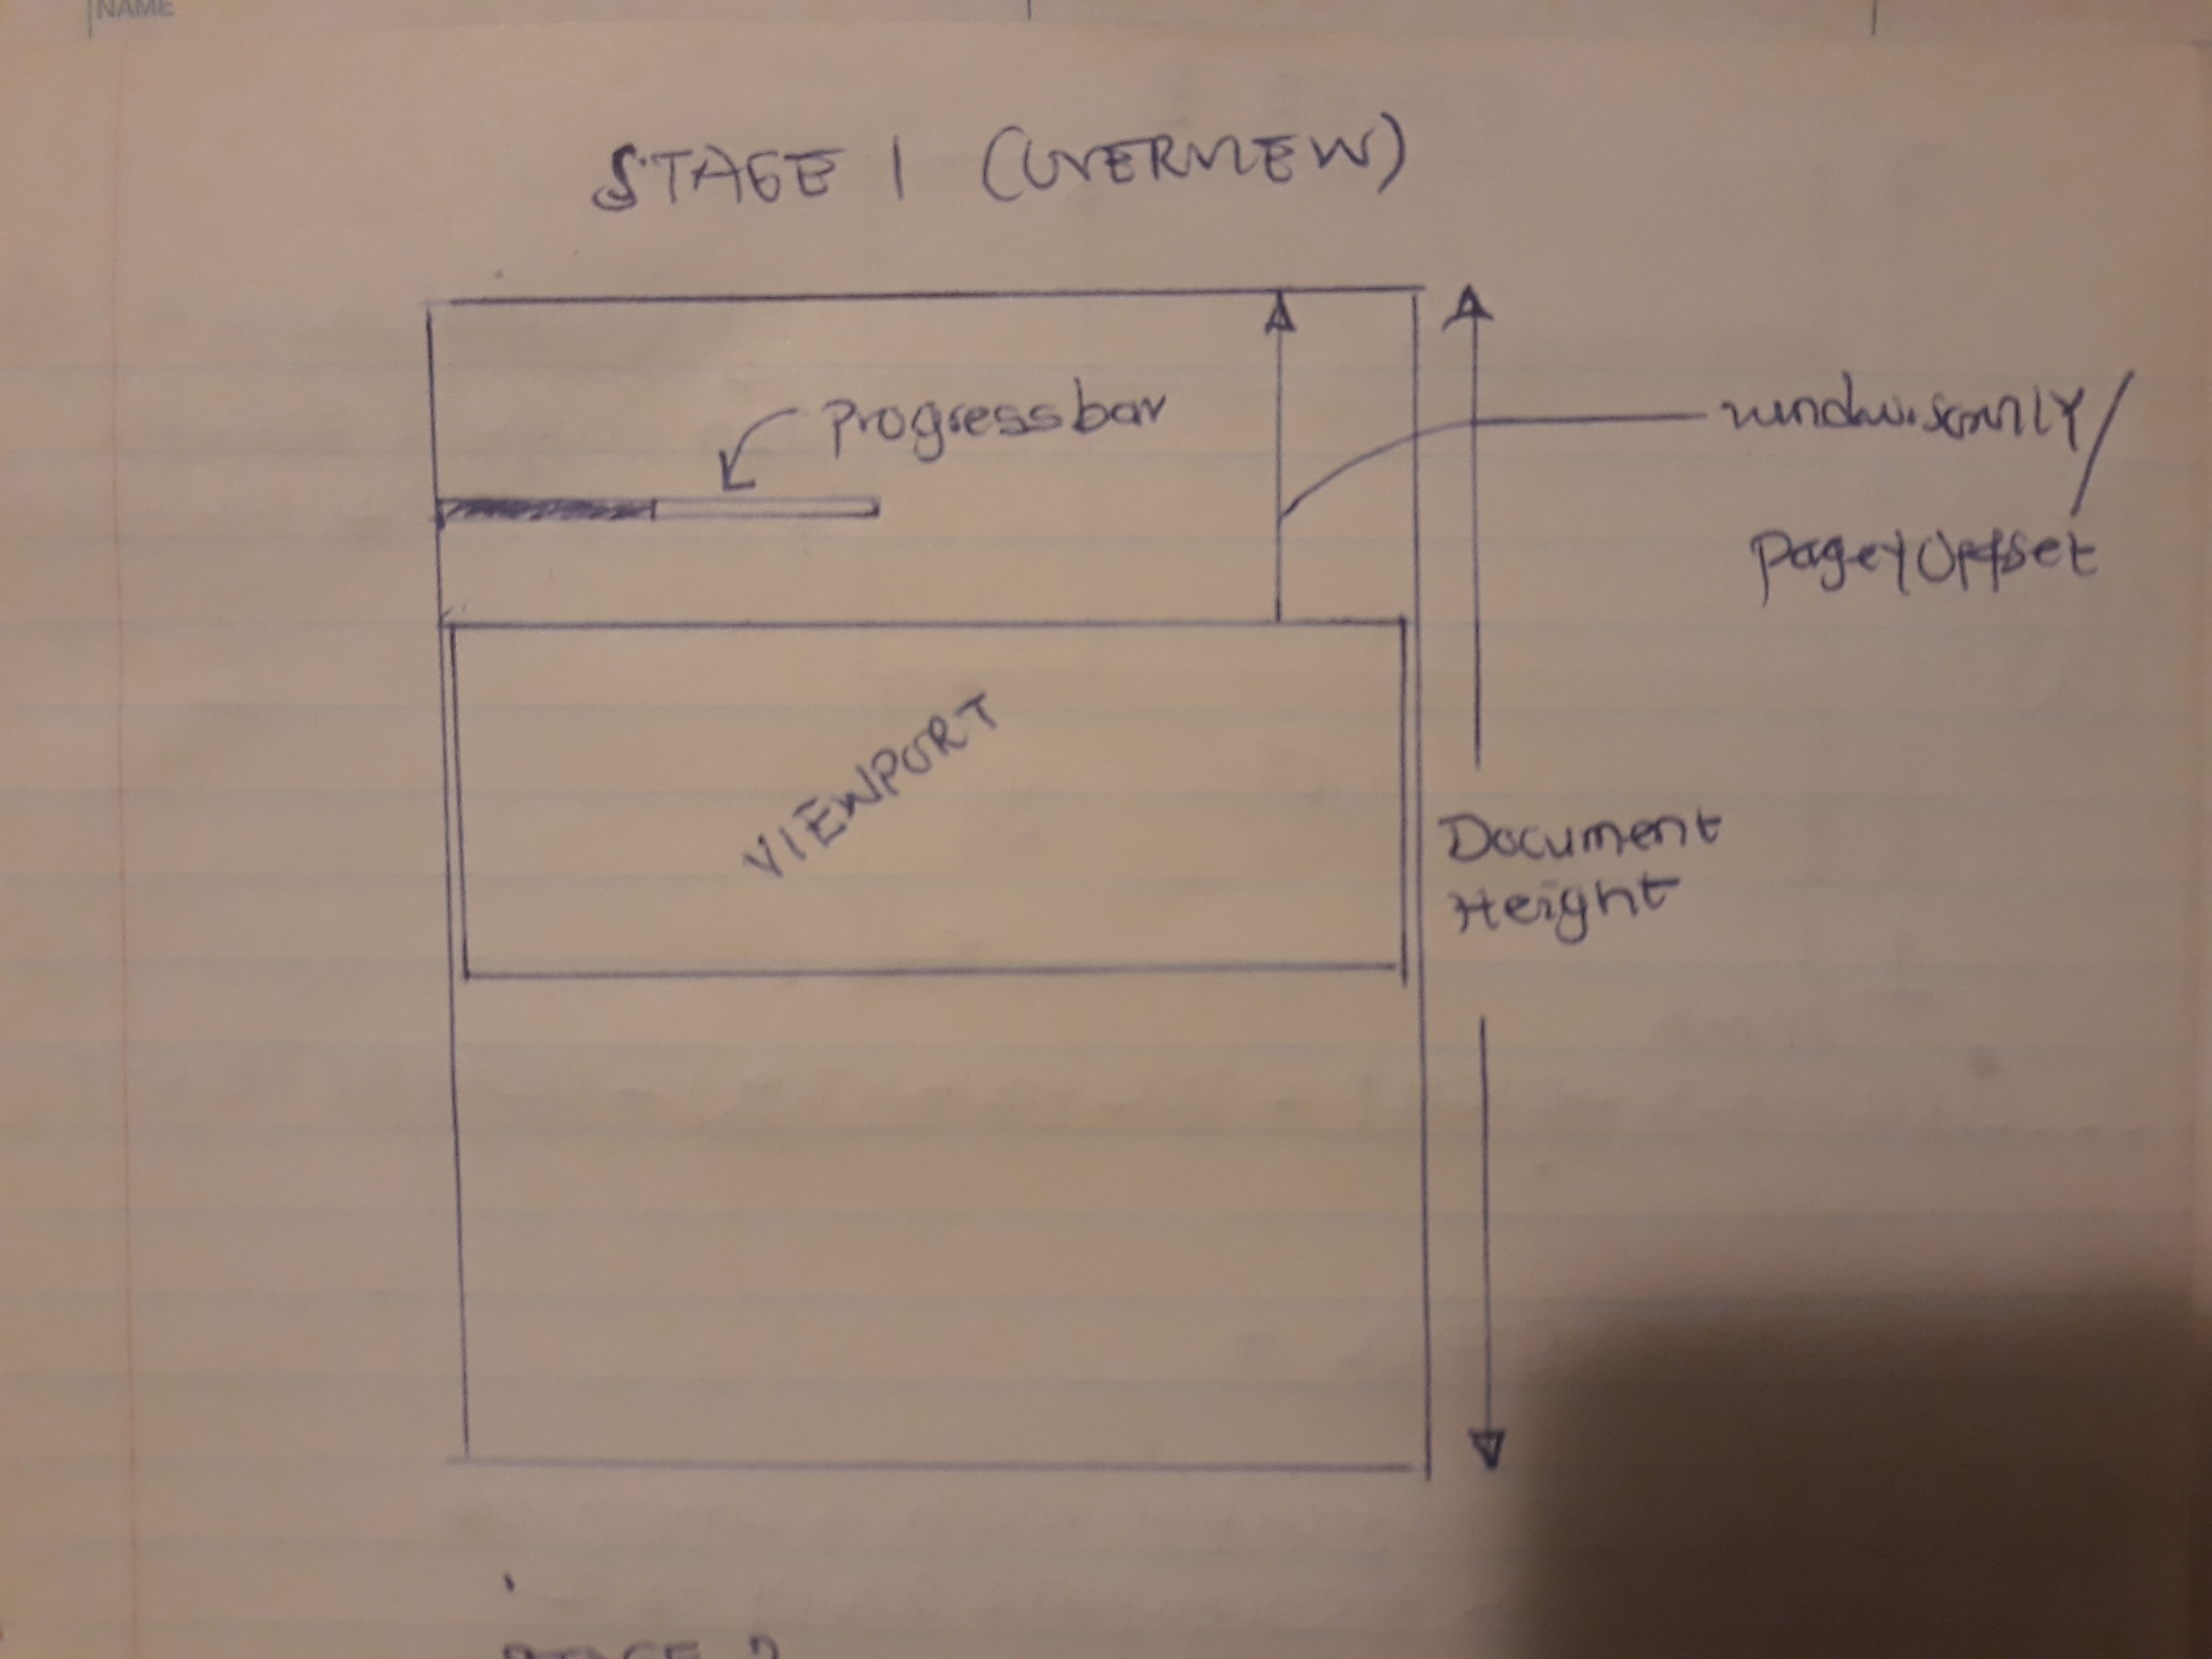 NAME
STAGE 1 (OVERVIEW)
Progressbar
window.scrollY/
pageYOffset
VIEWPORT
Document
Height
STAGE 2